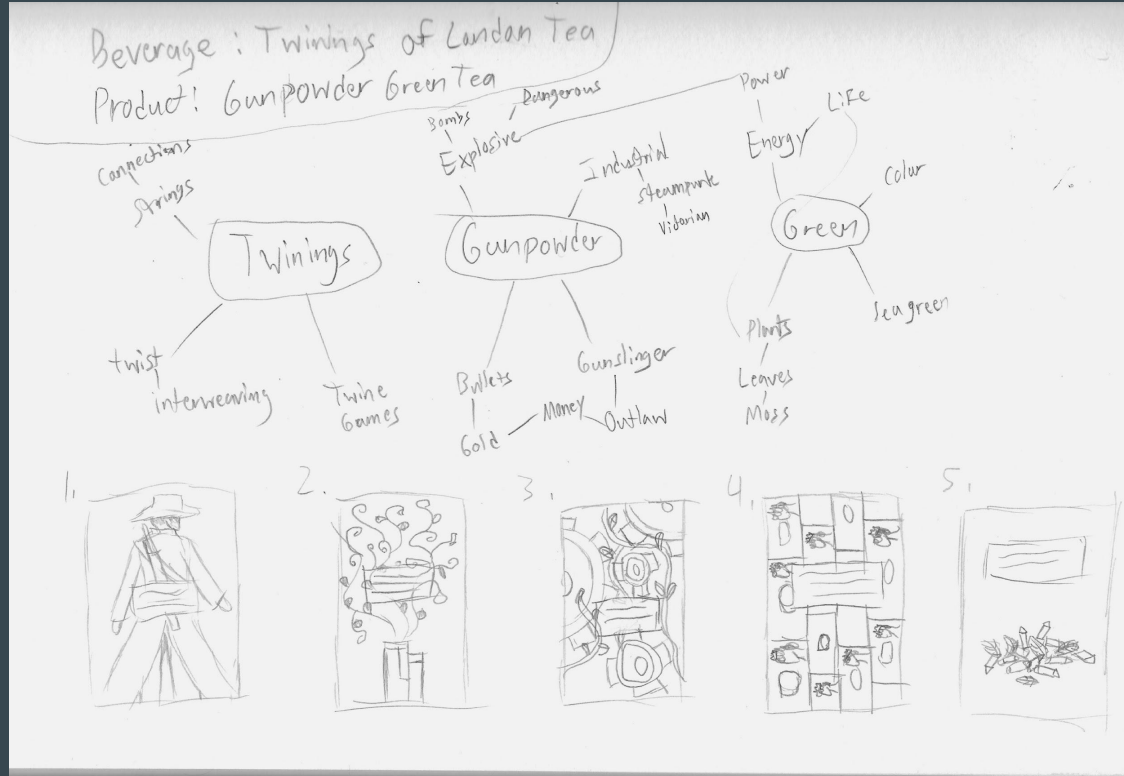 Beverage : Twinings of London Tea
Product: Gunpowder Green Tea
Connections
Strings
Twinings
twist
interweaving
Twine
Games
Bombs
Dangerous
Explosive
Industrial
Steampunk
Victorian
Gunpowder
Bullets
Gold
Money
Gunslinger
Outlaw
Power
Life
Energy
Color
Green
Seagreen
Plants
Leaves
Moss
1.
2.
3.
4.
5.